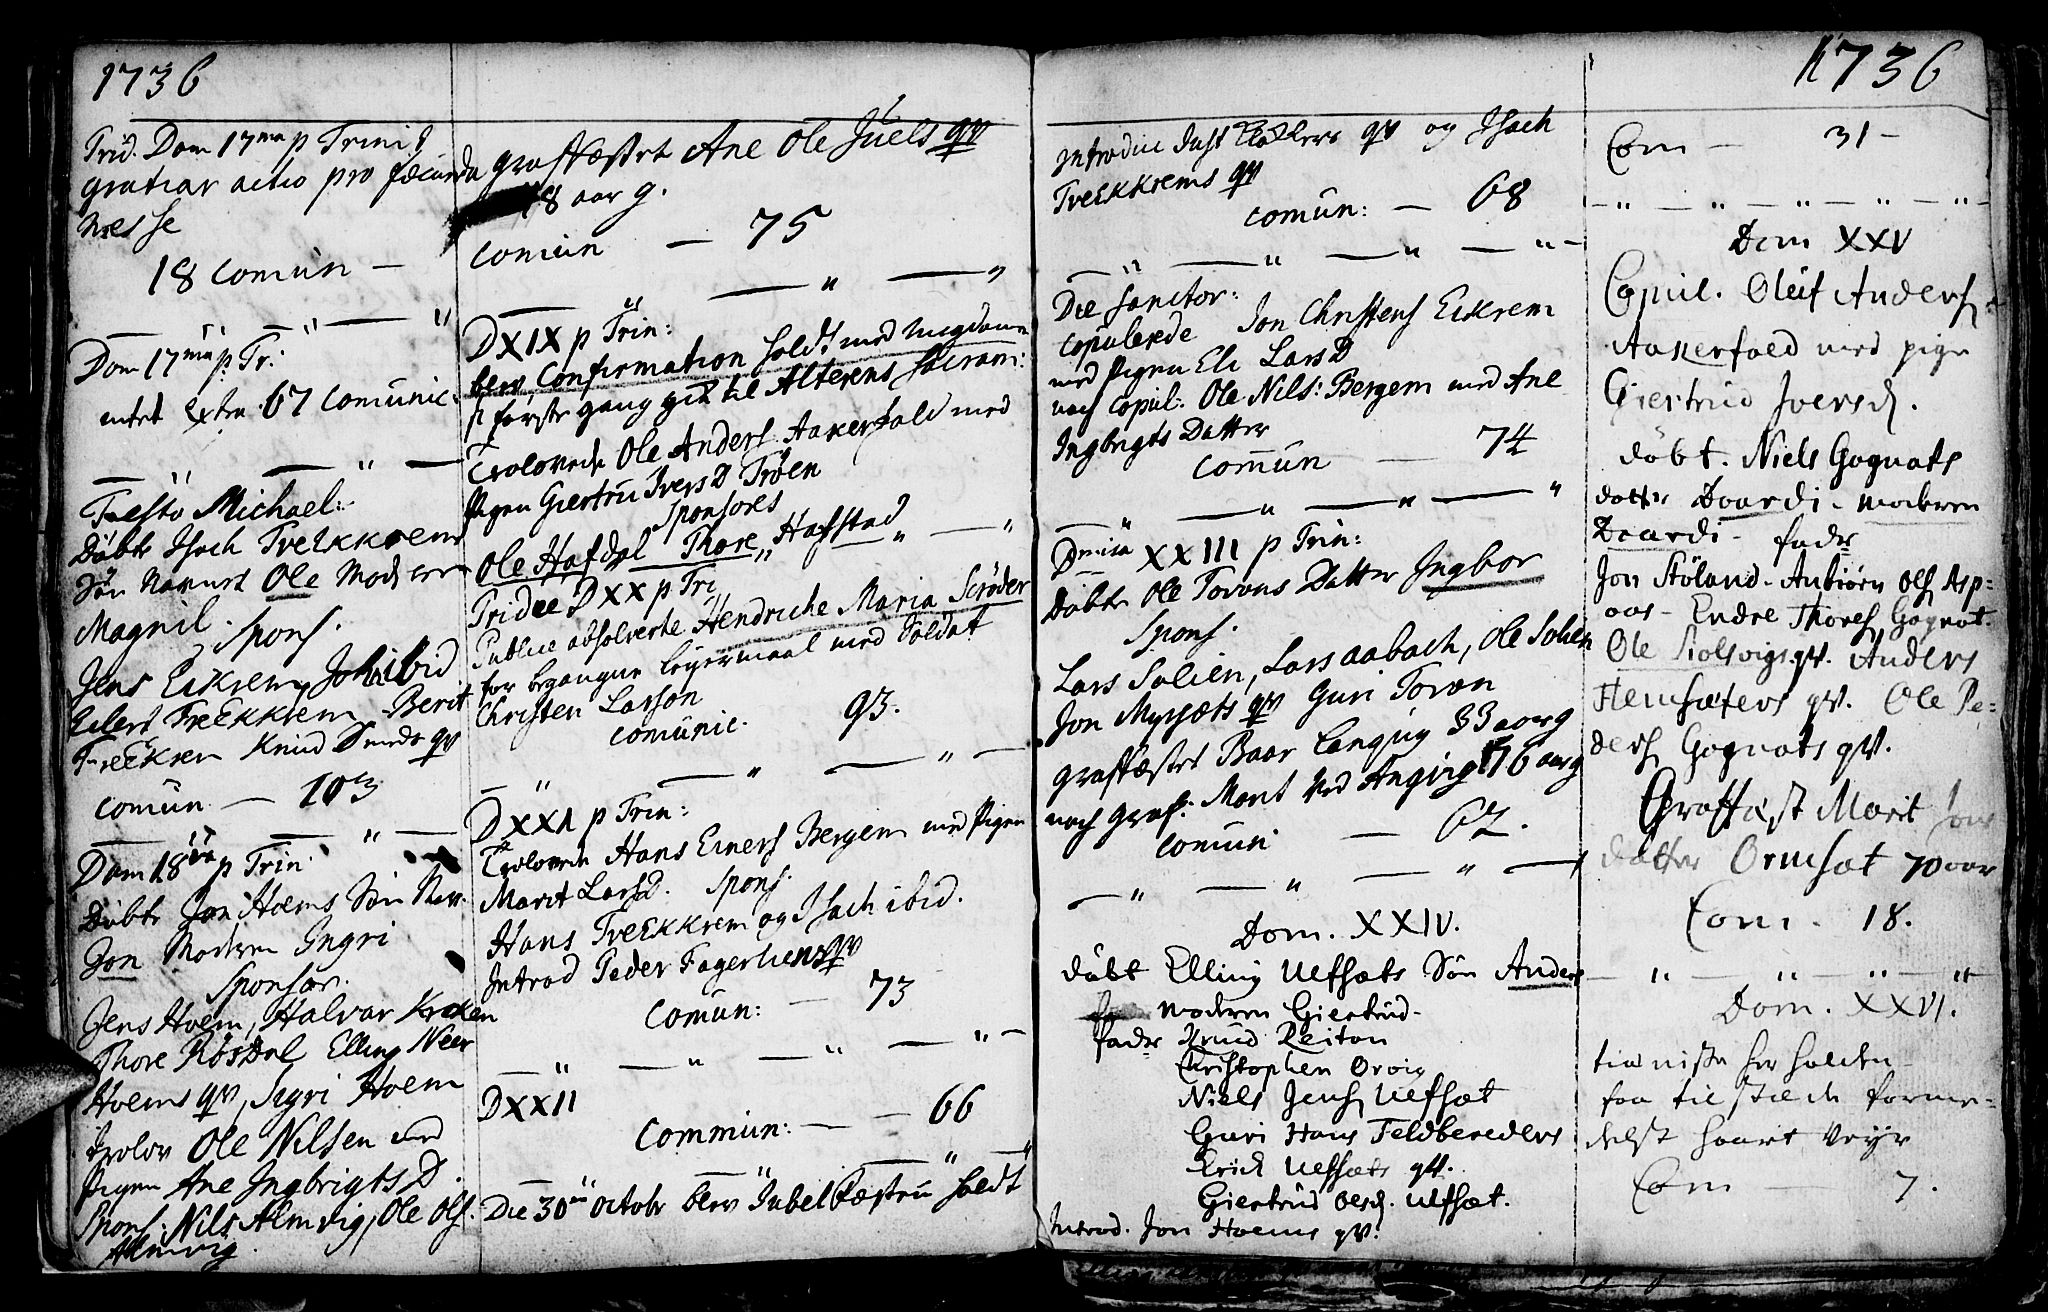 1736
Trid. Dom 17ma p Trinit
gratiar actio pro fæcunda
Messe
18 comun –
Dom 17ma p: Tr:
intet Extra. 67 comunic.
Festo Michael:
Döbte Isach Trekkrem
Sön Navnet Ole Moderen
Magnil. Spons.
Jens Eikrem, Joh ibid
Eilert Treekkrem Berit
Treekrem Knud Smeds qv
comun. – 103
Dom 18va p Trin
Döbte Jon Hoems Sön Nav.
Jon Moderen Ingri
Sponsor.
Jens Hoem, Halvor Kraken
Thore Rösdal Elling Neer
Hoems qv, Sigri Hoem
trolov Ole Nilsen med
Pigen Ane Ingbrigts D.
Spons: Nils Almvig, Ole Ols.
Almvig.
graffæstet Ane Ole Juels qv
78 aar g.
comun – 75
D XIX p Trin:
blev Confirmation holdt med ungdomen
som förste gang gik til Alterens Sacram:
Trolovede Ole Anders Aakerfald med
Pigen Giertru Ivers D Tröen
Sponsores
Ole Hafdal Thore Hafstad
Tridie D XX p Tri
Publice absolverte Hendriche Maria Scröder
for begangne leyermaal med Soldat
Christen Larson
comunic. 93.
D XXI p Trin:
Trolovede Hans Einers Bergem med Pigen
Marit Lars D. Spons.
Hans Treekkrem og Isach ibid.
Introd Peder Fagerliens qv
comun: – 73
D XXII
commun: – 66
Die 30 octobr blev Jubel Fæsten holdt
1736
Introdu qv og Isach
Treekkrems qv
comun: – 68
Die Sanctor:
copulerede Jon Christens Eikrem
med Pigen Eli Lars D
noch copul: Ole Nils: Bergem med Ane
Ingbrigts Datter
comun – 74
Dmica XXIII p Trin:
Döbte Ole Torvens Datter Ingbor
Spons.
Lars Solien, Lars aabach, Ole Solien
Jon Myrsæts qv Guri Torven
graffæstet Baar 33 aar g
noch graf: Marit ved Angvig 76 aar g
comun – 62.
Dom. XXIV.
döbt Elling Ulfsæts Sön Anders
moderen Giertrud-
fadr Knud Reiton
Christophen Orvig
Niels Jens Ulfsæt
Guri Hans Feldbereders
Erich Ulfsæts qv.
Giertrud Olsd. Ulfsæt.
Introd. Jon Hoems qv.
Com – 31 –
Dom XXV
Copul. Oluf Anders
Aakerfald med pige
Giertrud Iversd.
döbt. Niels Gagnats
datter Baardi - moderen
Baardi - fadr
Jon Stöland - Anbiörn Ols Asp-
aas - Endre Thores Gagnat.
Ole qv. Anders
Hemsæters qv. Ole Pe-
ders Gagnats qv.
Graffæst Marit
datter Ormsæt 70 aar
Com. 18.
Dom. XXVI.
tienniste her holden
faa tilstæde forme-
delst haart Veyr
Com – 7.